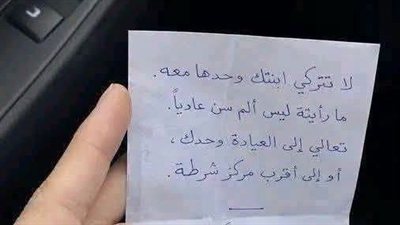 لا تتركي ابنتك وحدها معه.
ما رأيتة ليس ألم سن عادياً.
تعالي إلى العيادة وحدك،
أو إلى أقرب مركز شرطة.